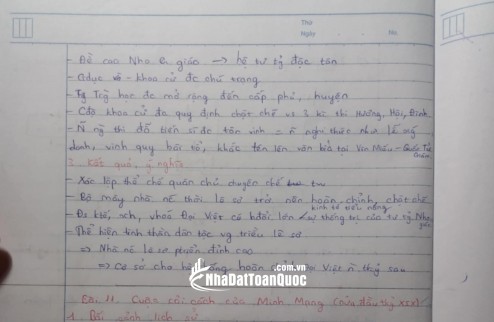 Thứ
Ngày No.
- Đề cao Nho giáo → hệ tư tg độc tôn
- Gdục - khoa cử đc chú trọng
- Tg Trg học đc mở rộng đến cấp phủ, huyện
- Cđộ khoa cử đc quy định chặt chẽ vs 3 kì thi Hương, Hội, Đình
- Ñ ng thi đỗ tiến sĩ đc tôn vinh = ñ nghi thức như lễ xướng
danh, vinh quy bái tổ, khắc tên lên văn bia tại Văn Miếu - Quốc Tử
Giám
3. Kết quả, ý nghĩa
- Xác lập thể chế quân chủ chuyên chế tw
- Bộ máy nhà nc thời Lê sơ trở nên hoàn chỉnh, chặt chẽ
kinh tế tiểu nông
- Đs ktế, xh, vhoá Đại Việt có bđổi lớn sự thống trị của tư tg Nho
giáo
- Thể hiện tinh thần dân tộc vg triều Lê sơ
⇒ Nhà nc Lê sơ ptriển đỉnh cao
⇒ Cơ sở cho hệ thống hoàn chỉnh Đại Việt ñ thkỷ sau
.com.vn
NHADATTOANQUOC
Bài 11. Cuộc cải cách của Minh Mạng (nửa đầu tkỷ XIX)
1. Bối cảnh lịch sử